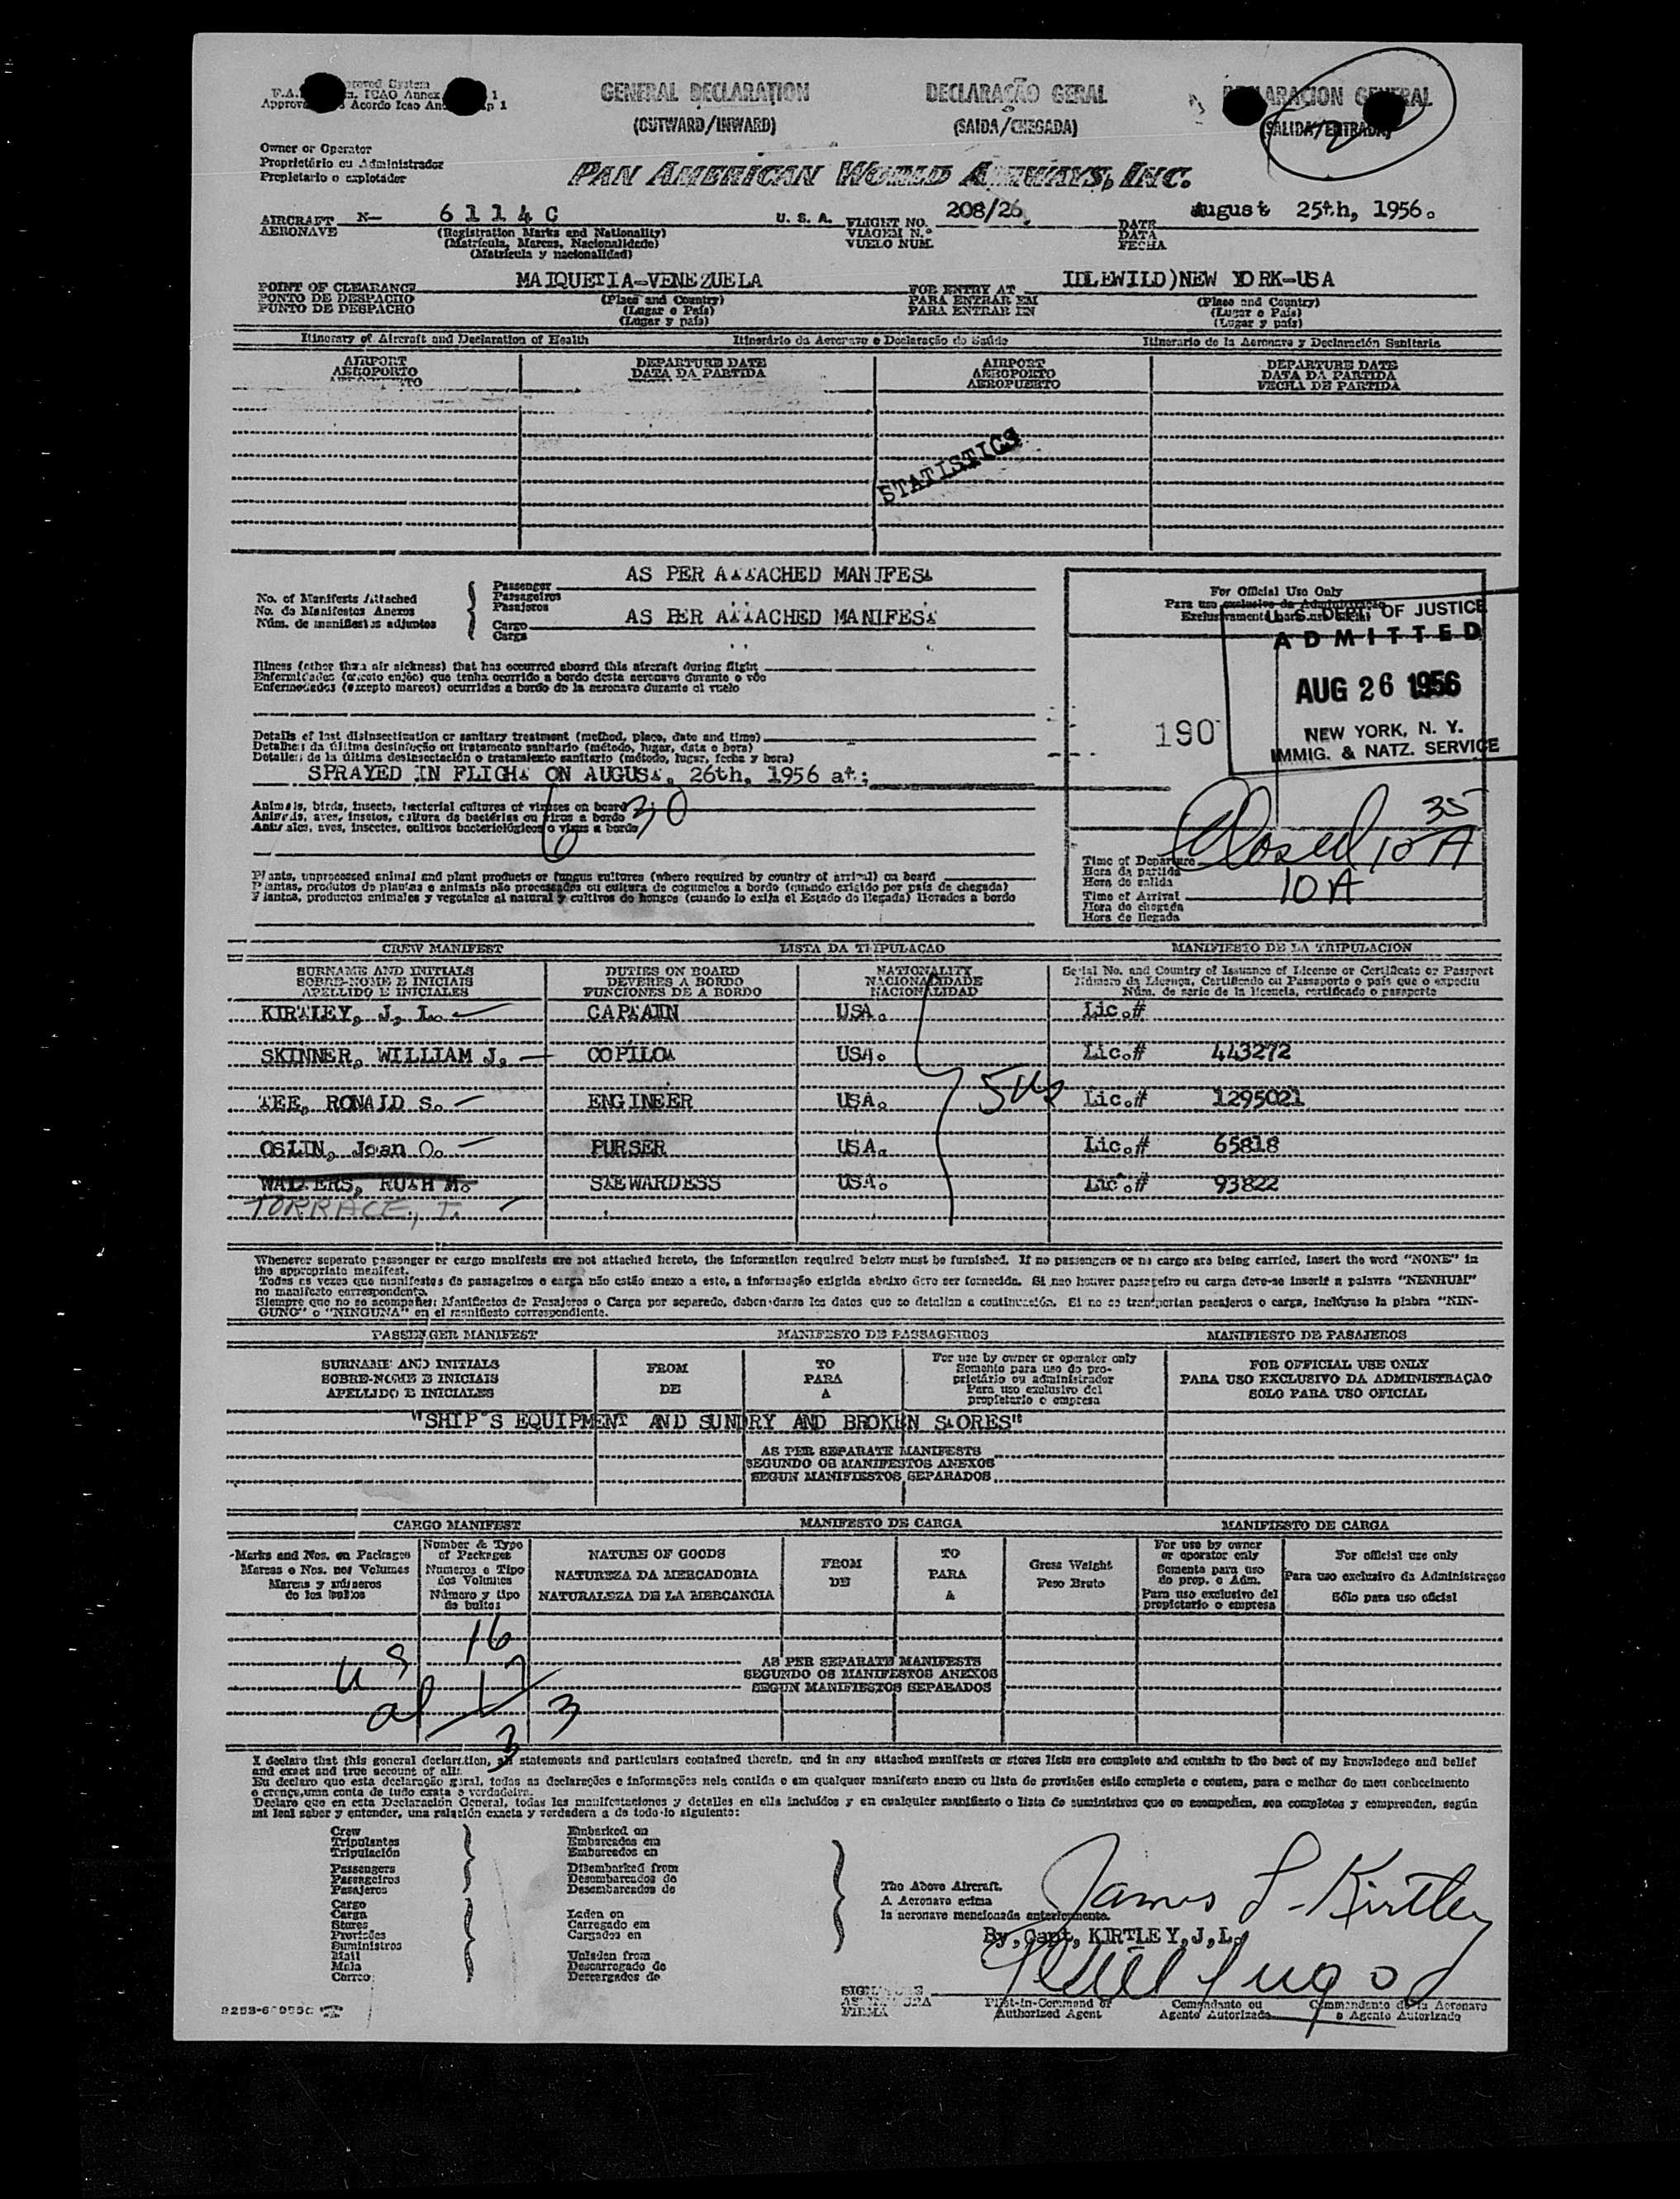 GENERAL DECLARATION
(OUTWARD/INWARD)
DECLARAÇÃO GERAL
(SAIDA/CHEGADA)
(SALIDA/ENTRADA)
Owner or Operator
Proprietário ou Administrador
Propietario o explotador
PAN AMERICAN WORLD AIRWAYS, INC.
AIRCRAFT N- 6114C U. S. A. FLIGHT NO. 208/26 DATE August 25th, 1956.
AERONAVE (Registration Marks and Nationality) VIAGEM N.º DATA
(Matrícula, Marcas, Nacionalidade) VUELO NUM. FECHA
(Matrícula y nacionalidad)
POINT OF CLEARANCE MAIQUETIA-VENEZUELA FOR ENTRY AT IDLEWILD)NEW YORK-USA
PONTO DE DESPACHO (Place and Country) PARA ENTRAR EM (Place and Country)
PUNTO DE DESPACHO (Lugar e País) PARA ENTRAR EN (Lugar e País)
(Lugar y país) (Lugar y país)
Itinerary of Aircraft and Declaration of Health Itinerário da Aeronave e Declaração de Saúde Itinerario de la Aeronave y Declaración Sanitaria
AIRPORT DEPARTURE DATE AIRPORT DEPARTURE DATE
AEROPORTO DATA DA PARTIDA AEROPORTO DATA DA PARTIDA
AEROPUERTO FECHA DE PARTIDA
STATISTICS
No. of Manifests Attached
No. de Manifestos Anexos
Núm. de manifiestos adjuntos
Passenger AS PER ATTACHED MANIFEST
Passageiros
Pasajeros
Cargo AS PER ATTACHED MANIFEST
Carga
For Official Use Only
U. S. DEPT. OF JUSTICE
ADMITTED
AUG 26 1956
NEW YORK, N. Y.
IMMIG. & NATZ. SERVICE
190
Illness (other than air sickness) that has occurred aboard this aircraft during flight
Enfermidades (exceto enjôo) que tenha ocorrido a bordo desta aeronave durante o vôo
Enfermedades (excepto mareos) ocurridas a bordo de la aeronave durante el vuelo
Details of last disinsectization or sanitary treatment (method, place, date and time)
Detalhes da última desinfeção ou tratamento sanitario (método, lugar, data e hora)
Detalles de la última desinsectación o tratamiento sanitario (método, lugar, fecha y hora)
SPRAYED IN FLIGHT ON AUGUST, 26th, 1956 at:
630
Animals, birds, insects, bacterial cultures of viruses on board
Animais, aves, insetos, cultura de bactérias ou virus a bordo
Animales, aves, insectos, cultivos bacteriológicos o virus a bordo
Closed 10 35 A
Time of Departure
Hora da partida
Hora de salida
10 A
Time of Arrival
Hora de chegada
Hora de llegada
Plants, unprocessed animal and plant products or fungus cultures (where required by country of arrival) on board
Plantas, produtos de plantas e animais não processados ou cultura de cogumelos a bordo (quando exigido por país de chegada)
Plantas, productos animales y vegetales al natural y cultivos de hongos (cuando lo exija el Estado de llegada) llevados a bordo
CREW MANIFEST LISTA DA TRIPULACAO MANIFIESTO DE LA TRIPULACION
SURNAME AND INITIALS DUTIES ON BOARD NATIONALITY Serial No. and Country of Issuance of License or Certificate or Passport
SOBRE-NOME E INICIAIS DEVERES A BORDO NACIONALIDADE Número da Licença, Certificado ou Passaporte e país que o expediu
APELLIDO E INICIALES FUNCIONES DE A BORDO NACIONALIDAD Núm. de serie de la licencia, certificado o pasaporte
KIRTLEY, J, L. CAPTAIN USA. Lic.#
SKINNER, WILLIAM J. COPILOT USA. Lic.# 443272
5 US
TEE, RONALD S. ENGINEER USA. Lic.# 1295021
OSLIN, Joan O. PURSER USA. Lic.# 65818
WALTERS, RUTH M. STEWARDESS USA. Lic.# 93822
TORRACE, T.
Whenever separate passenger or cargo manifests are not attached hereto, the information required below must be furnished. If no passengers or no cargo are being carried, insert the word "NONE" in
the appropriate manifest.
Todas as vezes que manifestos de passageiros e carga não estão anexo a este, a informação exigida abaixo deve ser fornecida. Si nao houver passageiro ou carga deve-se inserir a palavra "NENHUM"
no manifesto correspondente.
Siempre que no se acompañe: Manifiestos de Pasajeros o Carga por separado, deben darse los datos que se detallan a continuación. Si no se transportan pasajeros o carga, inclúyase la plabra "NIN-
GUNO" o "NINGUNA" en el manifiesto correspondiente.
PASSENGER MANIFEST MANIFESTO DE PASSAGEIROS MANIFIESTO DE PASAJEROS
SURNAME AND INITIALS FROM TO For use by owner or operator only FOR OFFICIAL USE ONLY
SOBRE-NOME E INICIAIS DE PARA Somente para uso do proprietário ou administrador PARA USO EXCLUSIVO DA ADMINISTRAÇAO
APELLIDO E INICIALES A Para uso exclusivo del propietario o empresa SOLO PARA USO OFICIAL
"SHIP'S EQUIPMENT AND SUNDRY AND BROKEN STORES"
AS PER SEPARATE MANIFESTS
SEGUNDO OS MANIFESTOS ANEXOS
SEGUN MANIFIESTOS SEPARADOS
CARGO MANIFEST MANIFESTO DE CARGA MANIFIESTO DE CARGA
Marks and Nos. on Packages
Marcas e Nos. nos Volumes
Marcas y números de los bultos
Number & Type of Packages
Numeros e Tipo dos Volumes
Número y tipo de bultos
NATURE OF GOODS
NATUREZA DA MERCADORIA
NATURALEZA DE LA MERCANCIA
FROM
DE
TO
PARA
A
Gross Weight
Peso Bruto
For use by owner or operator only
Somente para uso do prop. e Adm.
Para uso exclusivo del propietario o empresa
For official use only
Para uso exclusivo da Administraçao
Sólo para uso oficial
US 16
al 17
33
AS PER SEPARATE MANIFESTS
SEGUNDO OS MANIFESTOS ANEXOS
SEGUN MANIFIESTOS SEPARADOS
I declare that this general declaration, all statements and particulars contained therein, and in any attached manifests or stores lists are complete and contain to the best of my knowledege and belief
and exact and true account of all:
Eu declaro que esta declaração geral, todas as declarações e informações nela contida e em qualquer manifesto anexo ou lista de provisões estão completo e contem, para o melhor do meu conhecimento
e crença, uma conta de tudo exata e verdadeira.
Declaro que en esta Declaración General, todas las manifestaciones y detalles en ella incluidos y en cualquier manifiesto o lista de suministros que se acompañen, son completos y comprenden, según
mi leal saber y entender, una relación exacta y verdadera a de todo lo siguiente:
Crew
Tripulantes
Tripulación
Passengers
Passageiros
Pasajeros
Cargo
Carga
Stores
Provisões
Suministros
Mail
Mala
Correo
Embarked on
Embarcados em
Embarcados en
Disembarked from
Desembarcados do
Desembarcados de
Laden on
Carregado em
Cargados en
Unladen from
Descarregado de
Descargados de
The Above Aircraft.
A Aeronave acima
la aeronave mencionada anteriormente.
James L. Kirtley
By, Capt, KIRTLEY, J, L.
SIGNATURE
ASSINATURA
FIRMA
Pilot-in-Command or Authorized Agent
Comandante ou Agente Autorizado
Commandante de la Aeronave o Agente Autorizado